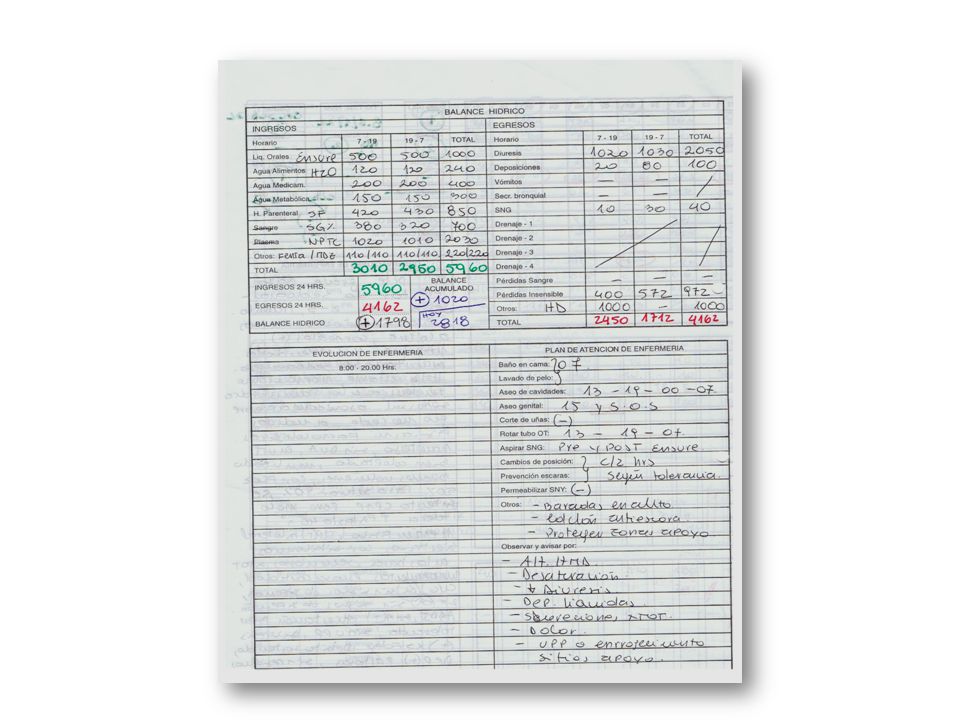 BALANCE HIDRICO
INGRESOS
Horario 7 - 19 19 - 7 TOTAL
Liq. Orales Ensure 500 500 1000
Agua Alimentos H2O 120 120 240
Agua Medicam. 200 200 400
Agua Metabólica 150 150 300
H. Parenteral SF 420 430 850
Sangre SG% 380 320 700
Plasma NPTC 1020 1010 2030
Otros: Fenta / MDZ 110/110 110/110 220/220
TOTAL 3010 2950 5960
INGRESOS 24 HRS. 5960
EGRESOS 24 HRS. 4162
BALANCE HIDRICO + 1798
BALANCE ACUMULADO
+ 1020
HOY 2818
EGRESOS
Horario 7 - 19 19 - 7 TOTAL
Diuresis 1020 1030 2050
Deposiciones 20 80 100
Vómitos — — /
Secr. bronquial — — /
SNG 10 30 40
Drenaje - 1
Drenaje - 2
Drenaje - 3
Drenaje - 4
Pérdidas Sangre — — —
Pérdidas Insensible 400 572 972
Otros: HD 1000 — 1000
TOTAL 2450 1712 4162
EVOLUCION DE ENFERMERIA
8.00 - 20.00 Hrs.
PLAN DE ATENCION DE ENFERMERIA
Baño en cama: 07
Lavado de pelo:
Aseo de cavidades: 13 - 19 - 00 - 07
Aseo genital: 15 y S.O.S
Corte de uñas: (-)
Rotar tubo OT: 13 - 19 - 07
Aspirar SNG: Pre y Post Ensure
Cambios de posición: c/2 hrs
Prevención escaras: según tolerancia.
Permeabilizar SNY: (-)
Otros: - Barandas en alto
- Colchón antiescara
- Proteger zonas apoyo.
Observar y avisar por:
- Alt. HMD
- Desaturación.
- ↓ Diuresis
- Dep. líquidas
- Dolor.
- UPP o enrojecimiento
sitios apoyo.